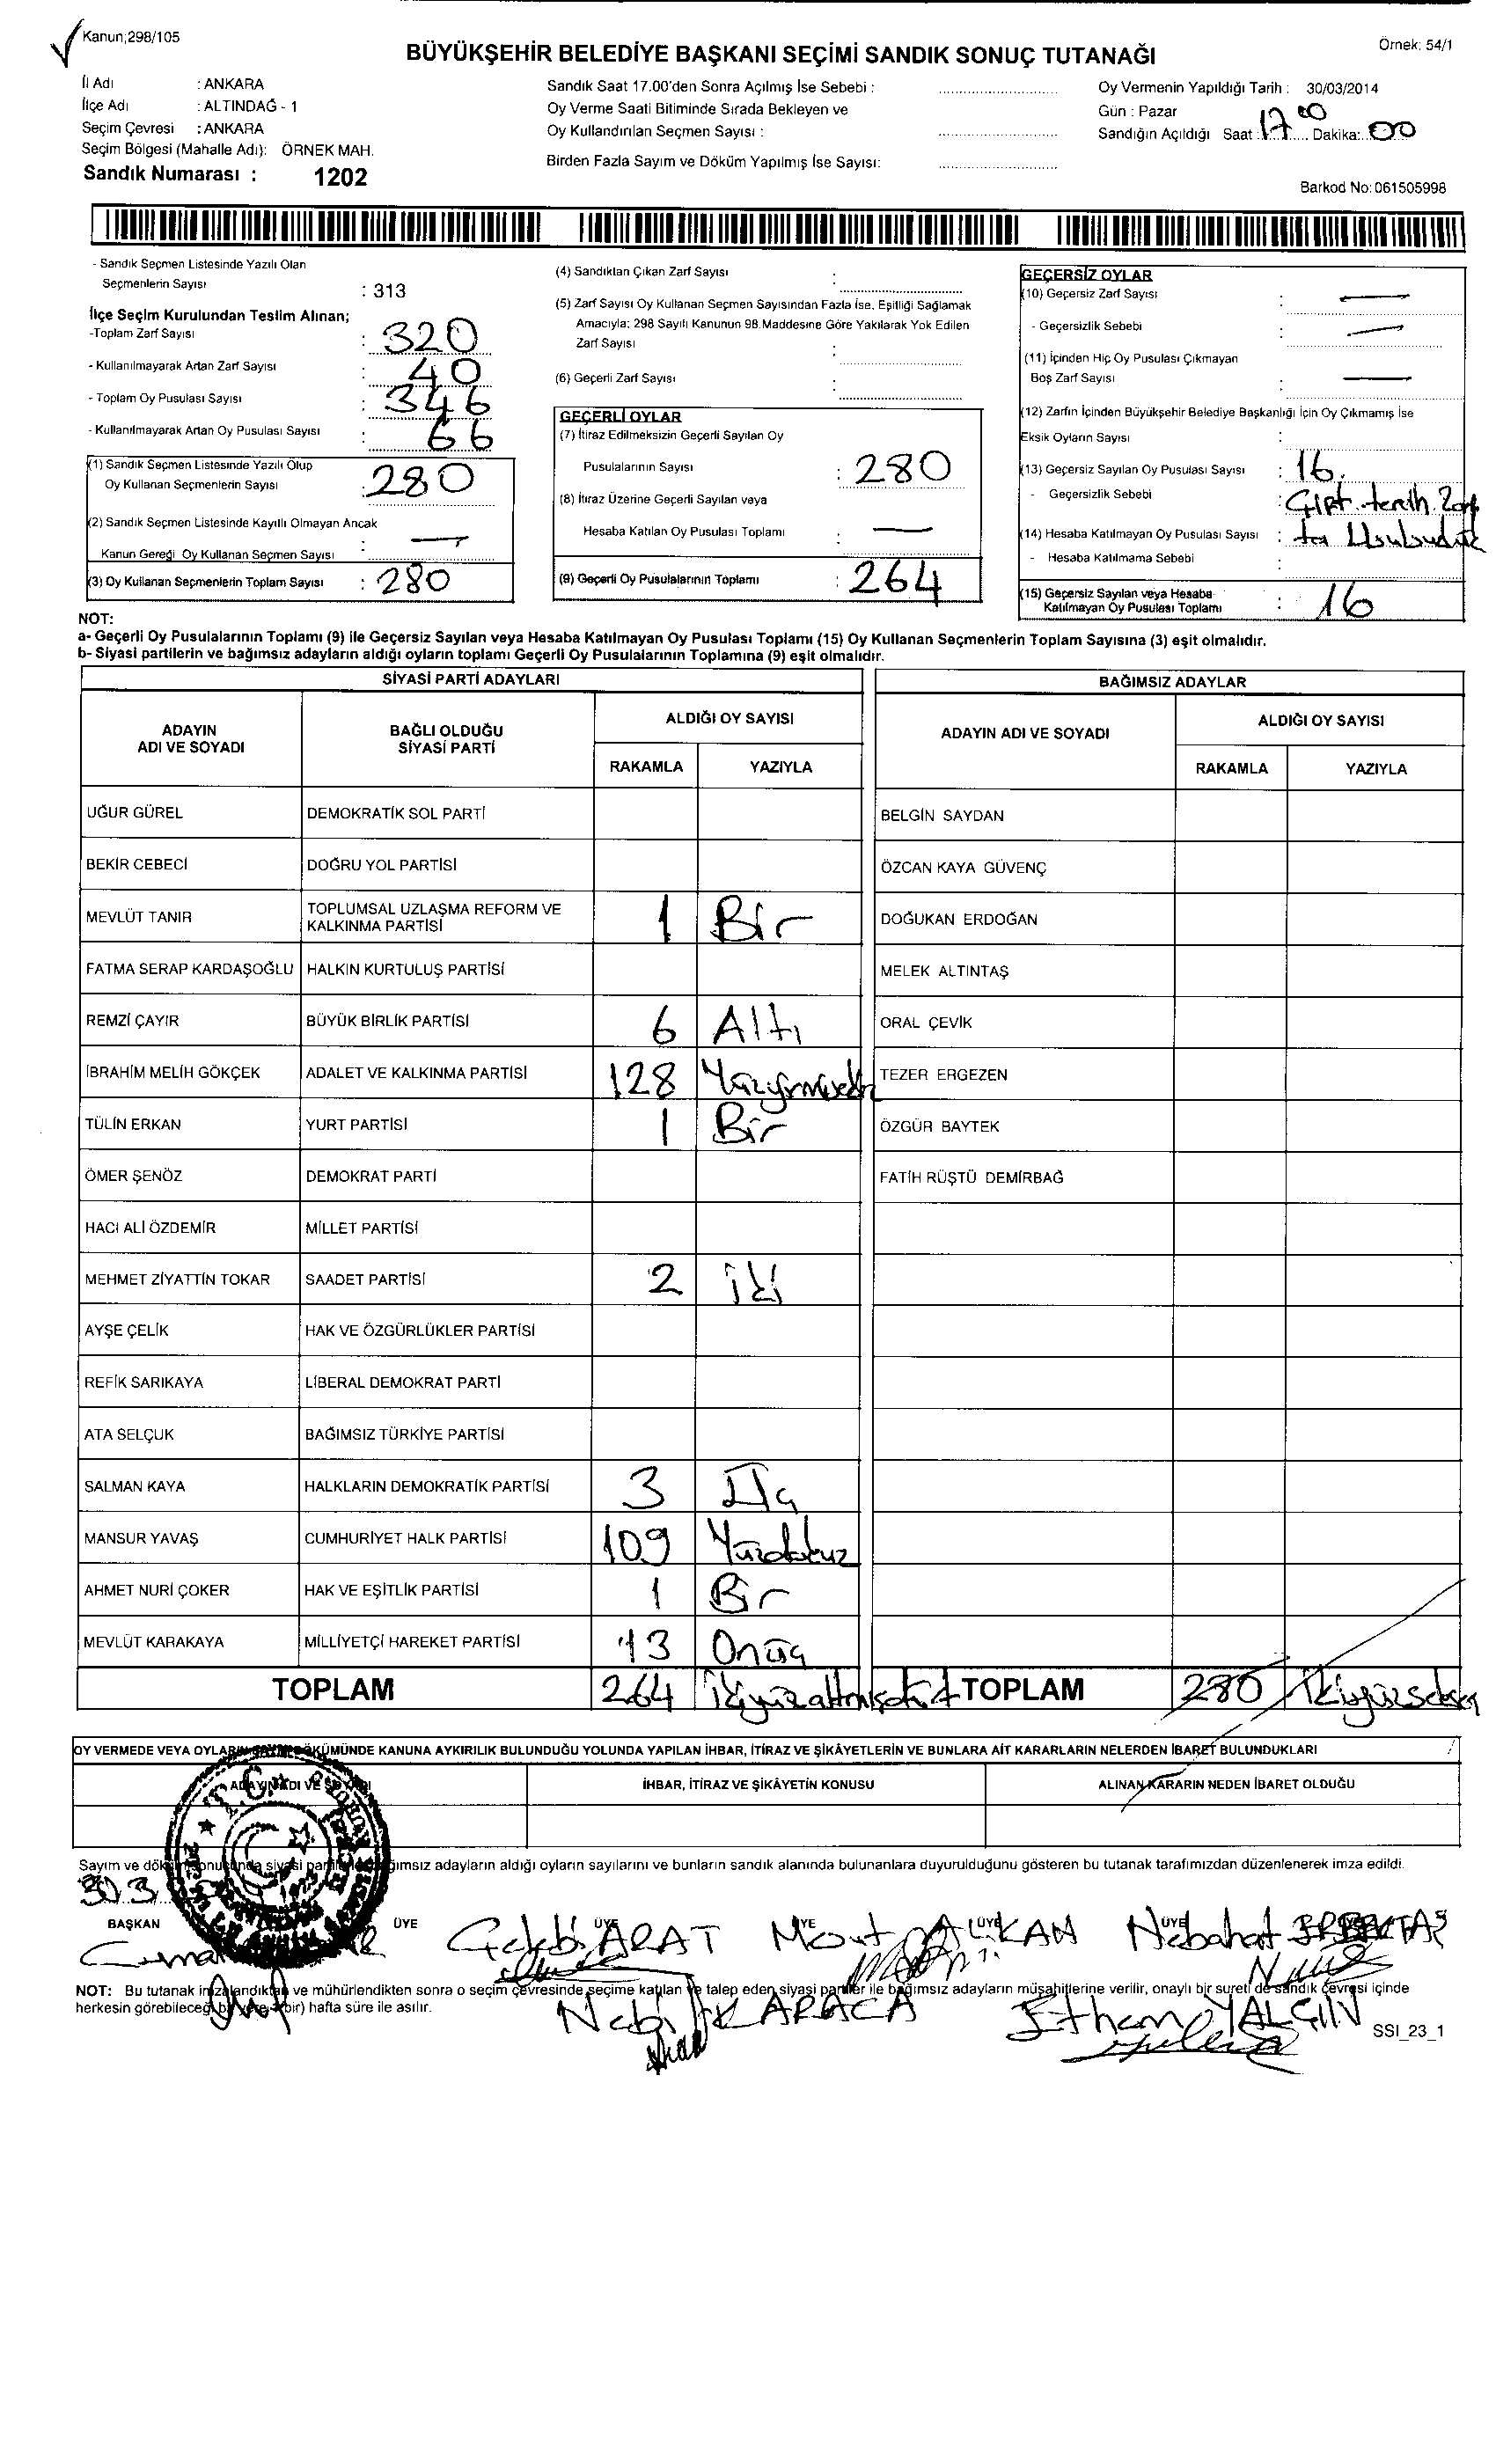 Kanun;298/105
Örnek: 54/1
BÜYÜKŞEHİR BELEDİYE BAŞKANI SEÇİMİ SANDIK SONUÇ TUTANAĞI
İl Adı : ANKARA
İlçe Adı : ALTINDAĞ - 1
Seçim Çevresi : ANKARA
Seçim Bölgesi (Mahalle Adı): ÖRNEK MAH.
Sandık Numarası : 1202
Sandık Saat 17.00'den Sonra Açılmış İse Sebebi :
Oy Verme Saati Bitiminde Sırada Bekleyen ve
Oy Kullandırılan Seçmen Sayısı :
Birden Fazla Sayım ve Döküm Yapılmış İse Sayısı:
Oy Vermenin Yapıldığı Tarih : 30/03/2014
Gün : Pazar
Sandığın Açıldığı Saat : 17 00 Dakika: 00
Barkod No: 061505998
- Sandık Seçmen Listesinde Yazılı Olan
Seçmenlerin Sayısı : 313
İlçe Seçim Kurulundan Teslim Alınan;
-Toplam Zarf Sayısı : 320
- Kullanılmayarak Artan Zarf Sayısı : 40
- Toplam Oy Pusulası Sayısı : 346
- Kullanılmayarak Artan Oy Pusulası Sayısı : 66
(1) Sandık Seçmen Listesinde Yazılı Olup
Oy Kullanan Seçmenlerin Sayısı : 280
(2) Sandık Seçmen Listesinde Kayıtlı Olmayan Ancak
Kanun Gereği Oy Kullanan Seçmen Sayısı : —
(3) Oy Kullanan Seçmenlerin Toplam Sayısı : 280
(4) Sandıktan Çıkan Zarf Sayısı :
(5) Zarf Sayısı Oy Kullanan Seçmen Sayısından Fazla İse, Eşitliği Sağlamak
Amacıyla: 298 Sayılı Kanunun 98.Maddesine Göre Yakılarak Yok Edilen
Zarf Sayısı :
(6) Geçerli Zarf Sayısı :
GEÇERLİ OYLAR
(7) İtiraz Edilmeksizin Geçerli Sayılan Oy
Pusulalarının Sayısı : 280
(8) İtiraz Üzerine Geçerli Sayılan veya
Hesaba Katılan Oy Pusulası Toplamı : —
(9) Geçerli Oy Pusulalarının Toplamı : 264
GEÇERSİZ OYLAR
(10) Geçersiz Zarf Sayısı : —
- Geçersizlik Sebebi : —
(11) İçinden Hiç Oy Pusulası Çıkmayan
Boş Zarf Sayısı : —
(12) Zarfın İçinden Büyükşehir Belediye Başkanlığı İçin Oy Çıkmamış İse
Eksik Oyların Sayısı :
(13) Geçersiz Sayılan Oy Pusulası Sayısı : 16
- Geçersizlik Sebebi : Çift tercih
(14) Hesaba Katılmayan Oy Pusulası Sayısı :
- Hesaba Katılmama Sebebi :
(15) Geçersiz Sayılan veya Hesaba
Katılmayan Oy Pusulası Toplamı : 16
NOT:
a- Geçerli Oy Pusulalarının Toplamı (9) ile Geçersiz Sayılan veya Hesaba Katılmayan Oy Pusulası Toplamı (15) Oy Kullanan Seçmenlerin Toplam Sayısına (3) eşit olmalıdır.
b- Siyasi partilerin ve bağımsız adayların aldığı oyların toplamı Geçerli Oy Pusulalarının Toplamına (9) eşit olmalıdır.
SİYASİ PARTİ ADAYLARI
ADAYIN ADI VE SOYADI
BAĞLI OLDUĞU SİYASİ PARTİ
ALDIĞI OY SAYISI
RAKAMLA YAZIYLA
UĞUR GÜREL DEMOKRATİK SOL PARTİ
BEKİR CEBECİ DOĞRU YOL PARTİSİ
MEVLÜT TANIR TOPLUMSAL UZLAŞMA REFORM VE KALKINMA PARTİSİ 1 Bir
FATMA SERAP KARDAŞOĞLU HALKIN KURTULUŞ PARTİSİ
REMZİ ÇAYIR BÜYÜK BİRLİK PARTİSİ 6 Altı
İBRAHİM MELİH GÖKÇEK ADALET VE KALKINMA PARTİSİ 128
TÜLİN ERKAN YURT PARTİSİ 1 Bir
ÖMER ŞENÖZ DEMOKRAT PARTİ
HACI ALİ ÖZDEMİR MİLLET PARTİSİ
MEHMET ZİYATTİN TOKAR SAADET PARTİSİ 2 iki
AYŞE ÇELİK HAK VE ÖZGÜRLÜKLER PARTİSİ
REFİK SARIKAYA LİBERAL DEMOKRAT PARTİ
ATA SELÇUK BAĞIMSIZ TÜRKİYE PARTİSİ
SALMAN KAYA HALKLARIN DEMOKRATİK PARTİSİ 3 Üç
MANSUR YAVAŞ CUMHURİYET HALK PARTİSİ 109 Yüzdokuz
AHMET NURİ ÇOKER HAK VE EŞİTLİK PARTİSİ 1 Bir
MEVLÜT KARAKAYA MİLLİYETÇİ HAREKET PARTİSİ 13 Onüç
TOPLAM 264 ikiyüzaltmışdört
BAĞIMSIZ ADAYLAR
ADAYIN ADI VE SOYADI
ALDIĞI OY SAYISI
RAKAMLA YAZIYLA
BELGİN SAYDAN
ÖZCAN KAYA GÜVENÇ
DOĞUKAN ERDOĞAN
MELEK ALTINTAŞ
ORAL ÇEVİK
TEZER ERGEZEN
ÖZGÜR BAYTEK
FATİH RÜŞTÜ DEMİRBAĞ
TOPLAM 280 ikiyüzseksen
OY VERMEDE VEYA OYLARIN SAYIM DÖKÜMÜNDE KANUNA AYKIRILIK BULUNDUĞU YOLUNDA YAPILAN İHBAR, İTİRAZ VE ŞİKÂYETLERİN VE BUNLARA AİT KARARLARIN NELERDEN İBARET BULUNDUKLARI
ADAYIN ADI VE SOYADI
İHBAR, İTİRAZ VE ŞİKÂYETİN KONUSU
ALINAN KARARIN NEDEN İBARET OLDUĞU
T.C.
Sayım ve döküm sonucunda siyasi partilerin bağımsız adayların aldığı oyların sayılarını ve bunların sandık alanında bulunanlara duyurulduğunu gösteren bu tutanak tarafımızdan düzenlenerek imza edildi.
30.3.
BAŞKAN ÜYE ÜYE ÜYE ÜYE ÜYE
Çelebi ARAT Nebahat
NOT: Bu tutanak imzalandıktan ve mühürlendikten sonra o seçim çevresinde seçime katılan ve talep eden siyasi partiler ile bağımsız adayların müşahitlerine verilir, onaylı bir sureti de sandık çevresi içinde
herkesin görebileceği bir yere (bir) hafta süre ile asılır.
Nebi KARACA Ethem YALÇIN
SSI_23_1